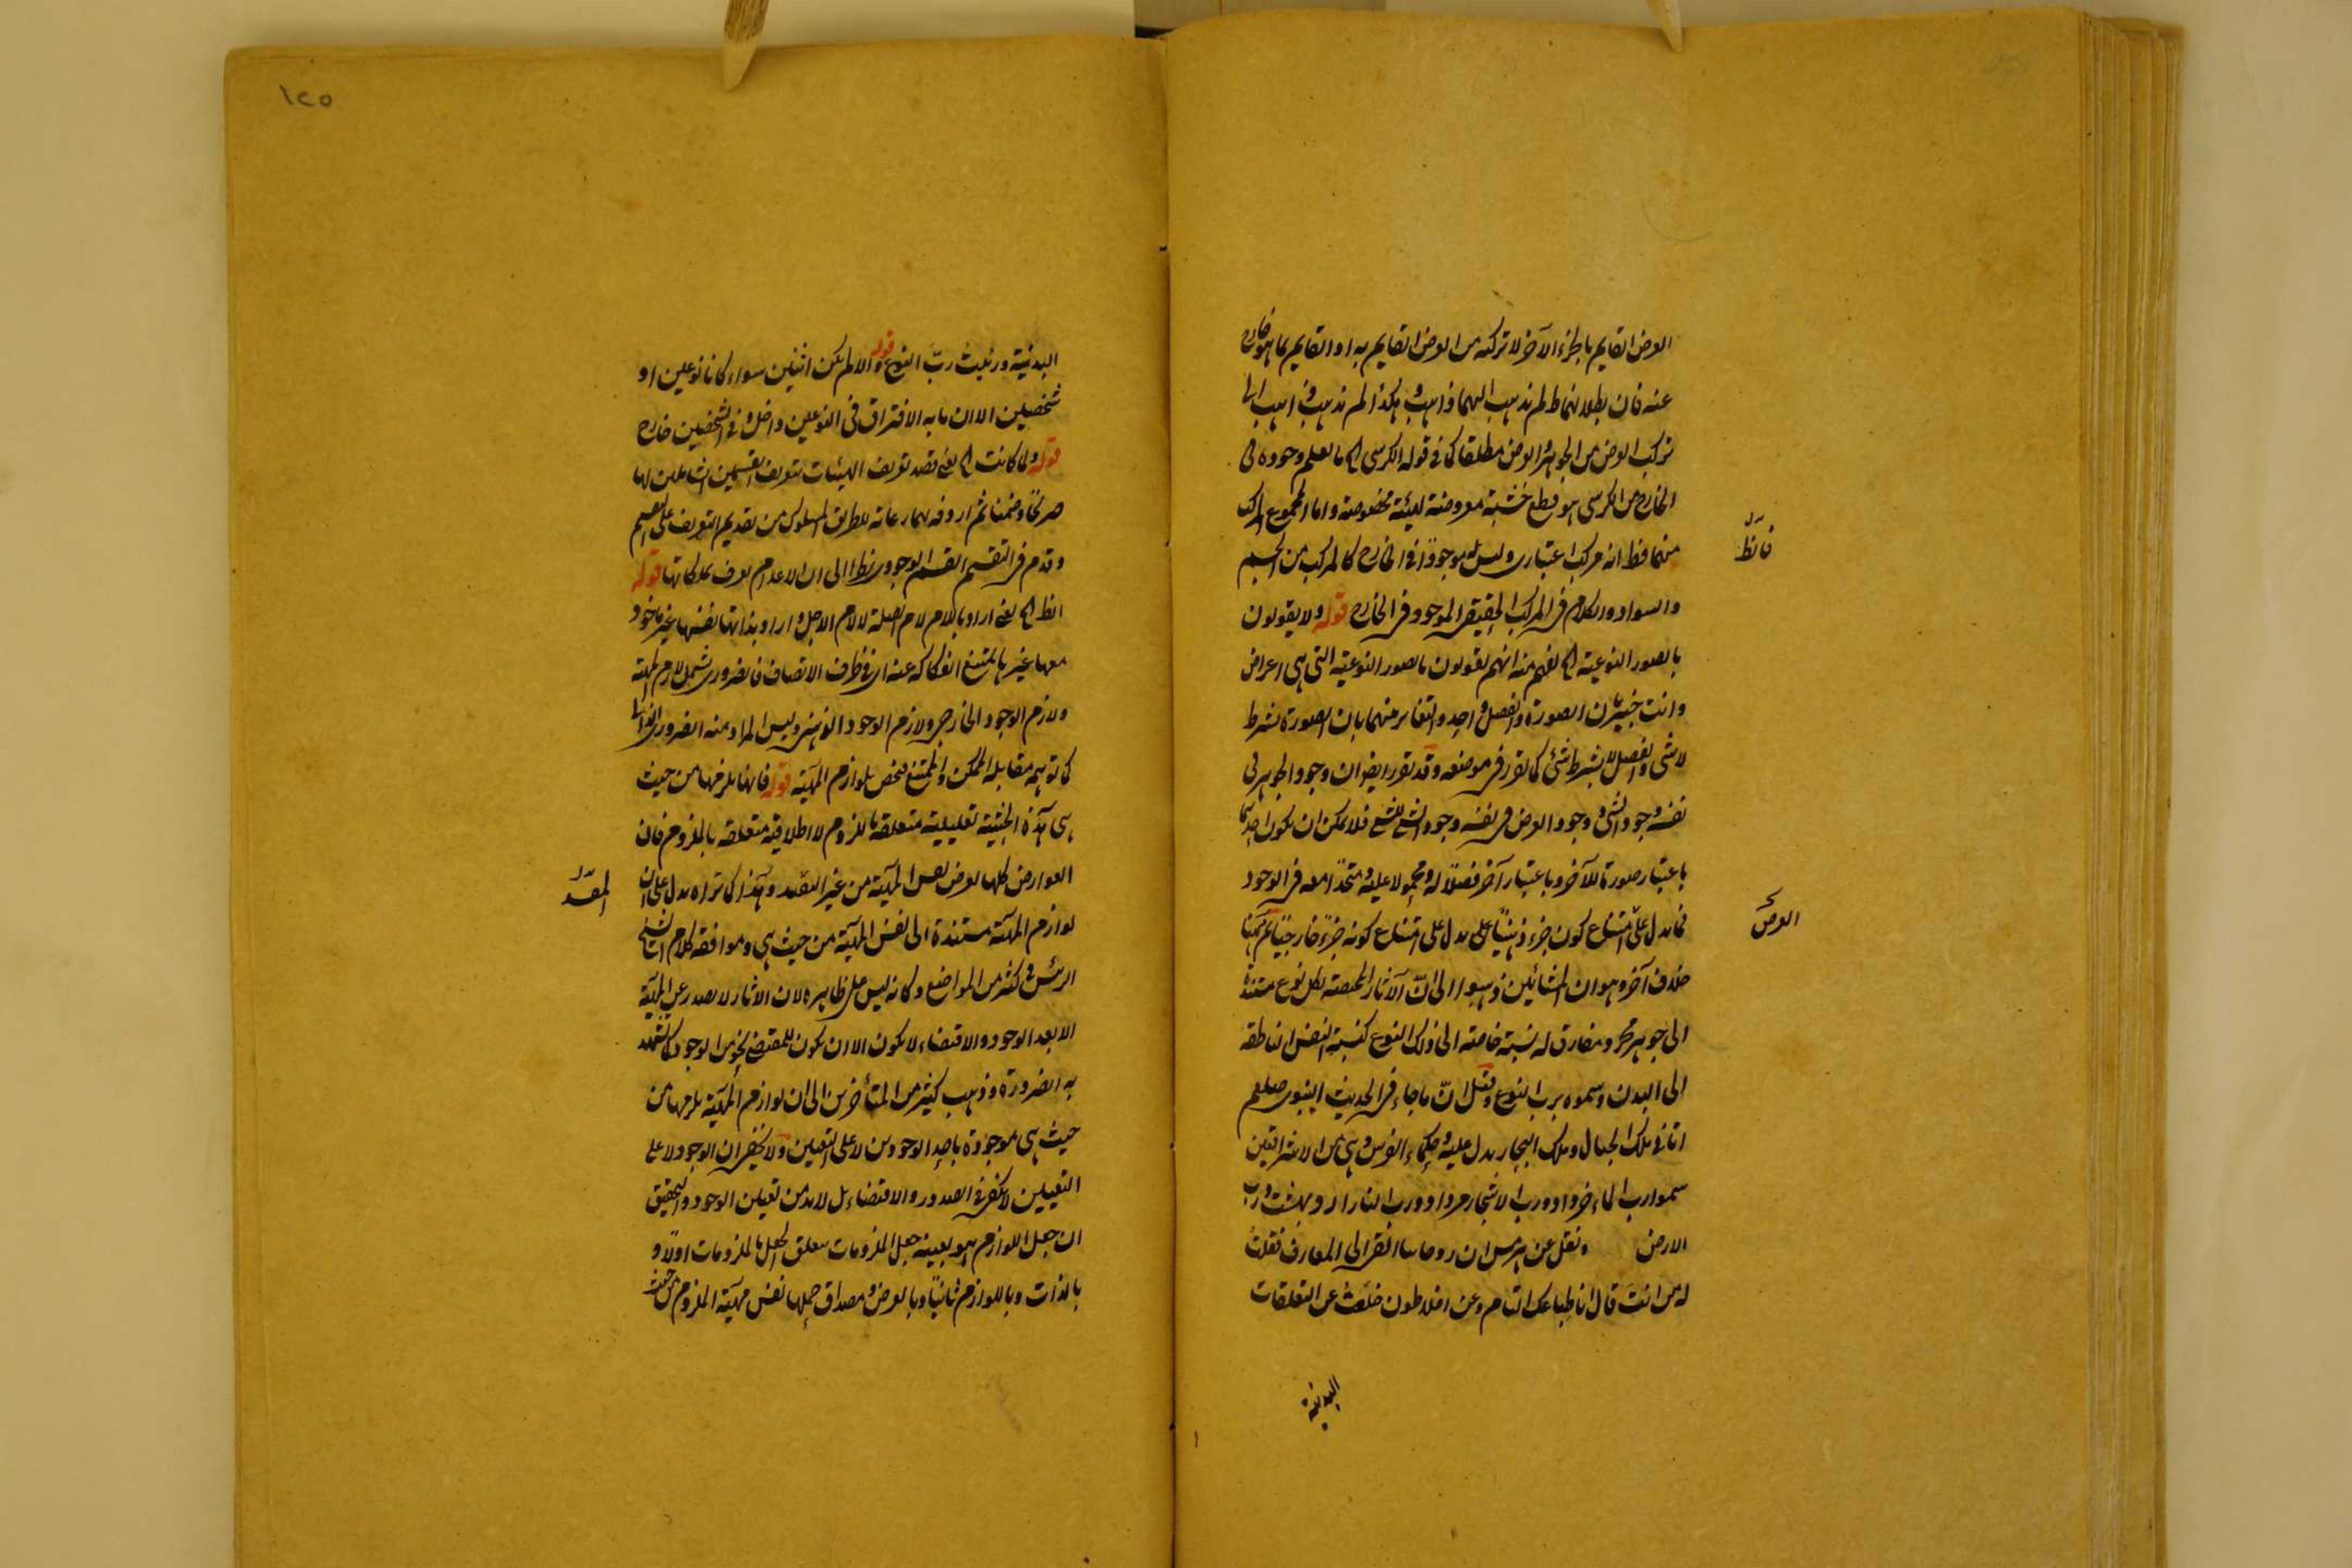 العرض القايم بالجزء الآخر لا تركبه من العرض القايم به او القايم بما هو خارج
عنه فان بطلانهما لم يذهب اليهما ذاهب وهكذا لم يذهب ذاهب الى
تركب العرض من الجوهر والعرض مطلقا كما في قوله الكرسى الخ ما يعلم وجوده فى
الخارج من الكرسى هو قطع خشبة معروضة لهيئة مخصوصة واما المجموع المركب
فانظر
منهما فظ انه مركب اعتبارى وليس له موجودًا فى الخارج كالمركب من الجسم
والسواد والكلام فى المركب الحقيقى الموجود فى الخارج قوله ولا يقولون
بالصور النوعية الخ يفهم منه انهم يقولون بالصور النوعية التى هى اعراض
وانت خبير بان الصورة والفصل واحد والتغاير منهما بان الصورة بشرط
لا شىء والفصل لا بشرط شىء كما تقرر فى موضعه وقد تقرر ايضا ان وجود الجوهر فى
نفسه وجود الشىء ووجود العرض فى نفسه وجود الشىء للشىء فلا يمكن ان يكون احدهما
باعتبار صورة للآخر وباعتبار آخر فصلا له ومحمولا عليه ومتحدا معه فى الوجود
العرض
فما يدل على امتناع كون جزء ذهنيًا على يدل على امتناع كونه جزءً خارجيًا ثم ههنا
خلاف آخر وهو ان المشائين ذهبوا الى انّ الآثار المختصة بكل نوع مستندة
الى جوهر مجرد مفارق له نسبة خاصة الى ذلك النوع كنسبة النفس الناطقة
الى البدن وسموه برب النوع وقيل انّ ما جاء فى الحديث النبوى صلعم
اتانى ملك الجبال وملك البحار يدل عليه وحكماء الفرس وهى من الاشراقيين
سموا رب الماء خرداد ورب الاشجار مرداد ورب النار ارديبهشت ورب
الارض ونقل عن هرمس ان روحانيا القى الى المعارف فقلت
له من انت قال انا طباعك التام وعن افلاطون خلعت عن التعلقات
البدنية
١٢٥
البدنية ورئيت ربّ النوع قوله والا لم يكن اثنين سواء كانا نوعين او
شخصين الا ان ما به الافتراق فى النوعين داخل وفى الشخصين خارج
قوله ولما كانت الخ يعنى قصد تعريف الهيئات بتعريف القسمين الشاملين لها
صريحًا وضمنا ثم اردفه بهما رعاية للطريق المسلوك من تقديم التعريف على التقسيم
وقدم فى التقسيم القسم الوجودى نظرا الى ان الاعدام تعرف بملكاتها قوله
انظ الخ يعنى اراد باللام لام الصلة لا لام الاجل واراد بذاتها نفسها غير ماخوذ
معها غيرها يمتنع انفكاكه عنه اى فى ظرف الاتصاف فالضرورى يشمل لازم المهية
ولازم الوجود الخارجى ولازم الوجود الذهنى وليس المراد منه الضرورى الذاتى
كما توهمه مقابله الممكن والممتنع فيختص بلوازم المهية قوله فانها يلزمها من حيث
هى هذه الحيثية تعليلية متعلقة باللزوم لا اطلاقية متعلقة بالملزوم فان
العوارض كلها تعرض نفس المهية من غير التقييد وهذا كما تراه يدل على ان
المقيد
لوازم المهية مستندة الى نفس المهية من حيث هى وموافقه كلام الشيخ
الرئيس فى كثير من المواضع وكانه ليس على ظاهره لان الآثار لا يصدر عن المهية
الا بعد الوجود والاقتضاء لا يكون الا ان يكون للمقتضى نحو من الوجود كما يشهد
به الضرورة وذهب كثير من المتأخرين الى ان لوازم المهية يلزمها من
حيث هى موجودة باحد الوجودين لا على التعيين ولا يخفى ان الوجود لا على
التعيين لا يكفى فى الصدور والاقتضاء بل لابد من تعيين الوجود والتحقيق
ان جعل اللوازم هو بعينه جعل الملزومات يتعلق الجعل بالملزومات اولا و
بالذات وباللوازم ثانيًا وبالعرض ومصداق حملها نفس مهية الملزوم من حيث